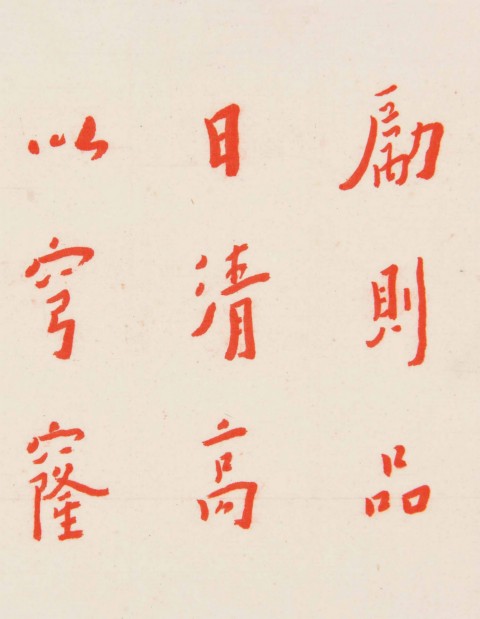 勵則品
日清高
以穹窿